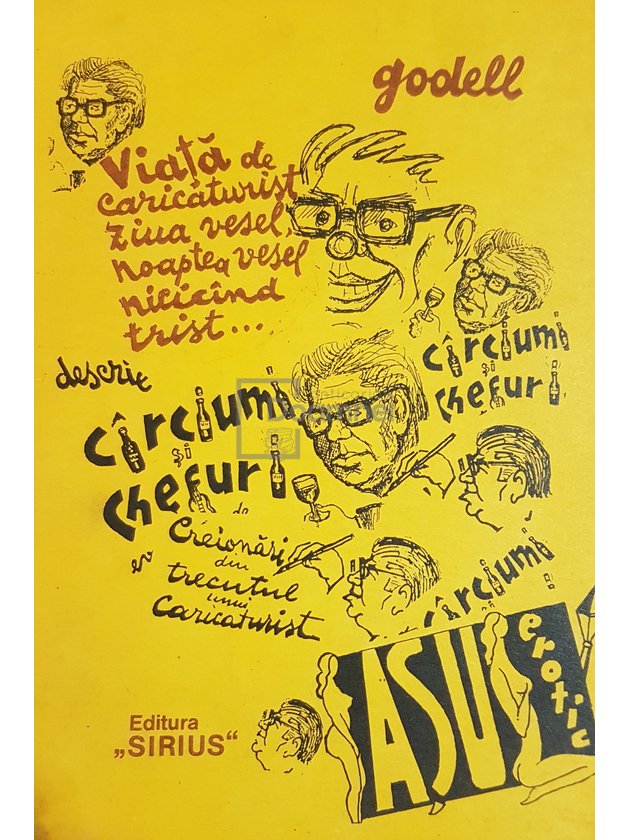 godell
Viață de
caricaturist
ziua vesel,
noaptea vesel
nicicînd
trist...
descrie
cîrciumi
și
chefuri
cîrciumi
și
chefuri
de
Creionări
din
trecutul
unui
caricaturist
cîrciumi
ASU
erotic
Editura
„SIRIUS“